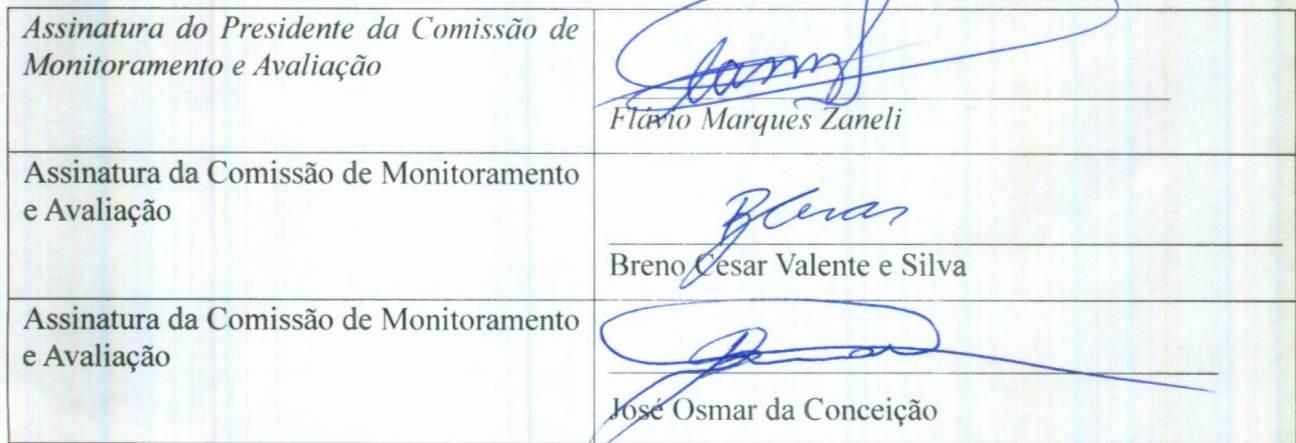 Assinatura do Presidente da Comissão de
Monitoramento e Avaliação
Flávio Marques Zaneli
Assinatura da Comissão de Monitoramento
e Avaliação
Breno Cesar Valente e Silva
Assinatura da Comissão de Monitoramento
e Avaliação
José Osmar da Conceição